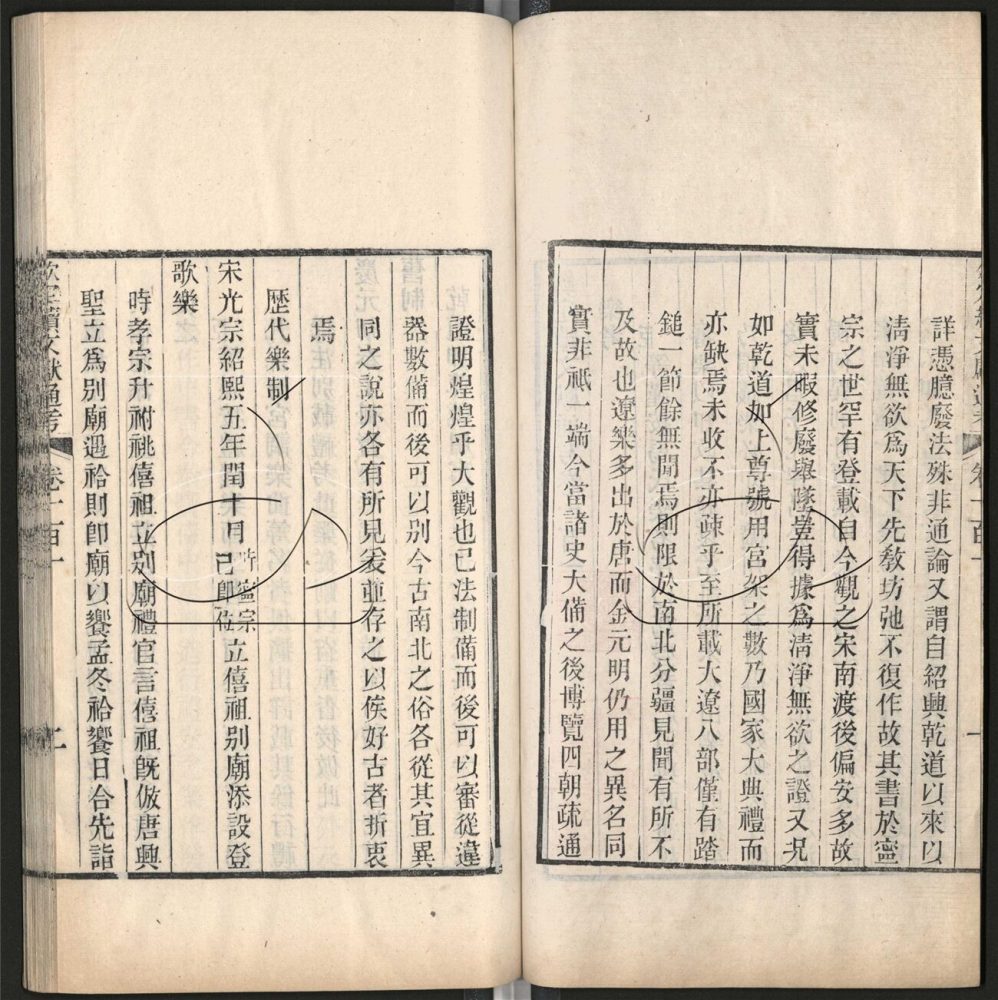 詳憑臆廢法殊非通論又謂自紹興乾道以來以
清淨無欲爲天下先敎坊弛不復作故其書於寧
宗之世罕有登載自今觀之宋南渡後偏安多故
實未暇修廢舉墜豈得據爲清淨無欲之證又況
如乾道加上尊號用宮架之數乃國家大典禮而
亦缺焉未收不亦疎乎至所載大遼八部僅有踏
鎚一節餘無聞焉則限於南北分疆見聞有所不
及故也遼樂多出於唐而金元明仍用之異名同
實非祇一端今當諸史大備之後博覽四朝疏通
證明煌煌乎大觀也已法制備而後可以審從違
器數備而後可以别今古南北之俗各從其宜異
同之說亦各有所見爰並存之以俟好古者折衷
焉
歷代樂制
宋光宗紹熙五年閏十月時寧宗已卽位立僖祖别廟添設登
歌樂
時孝宗升祔祧僖祖立别廟禮官言僖祖旣倣唐興
聖立爲别廟遇祫則卽廟以饗孟冬祫饗日合先詣
欽定續文獻通考 卷一百一 二